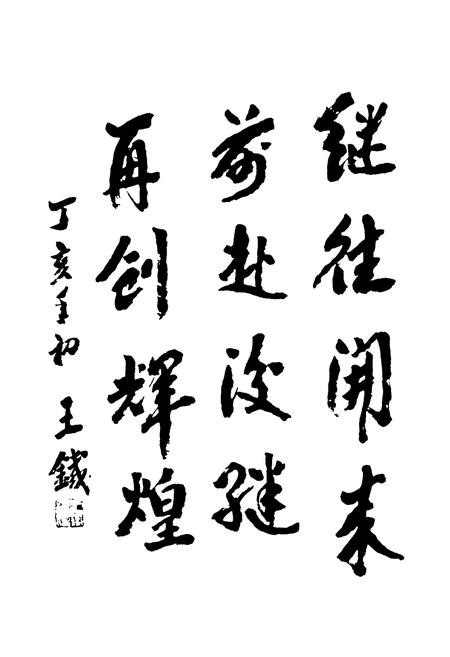 继往開来
前赴後继
再创辉煌
丁亥年初 王鐵